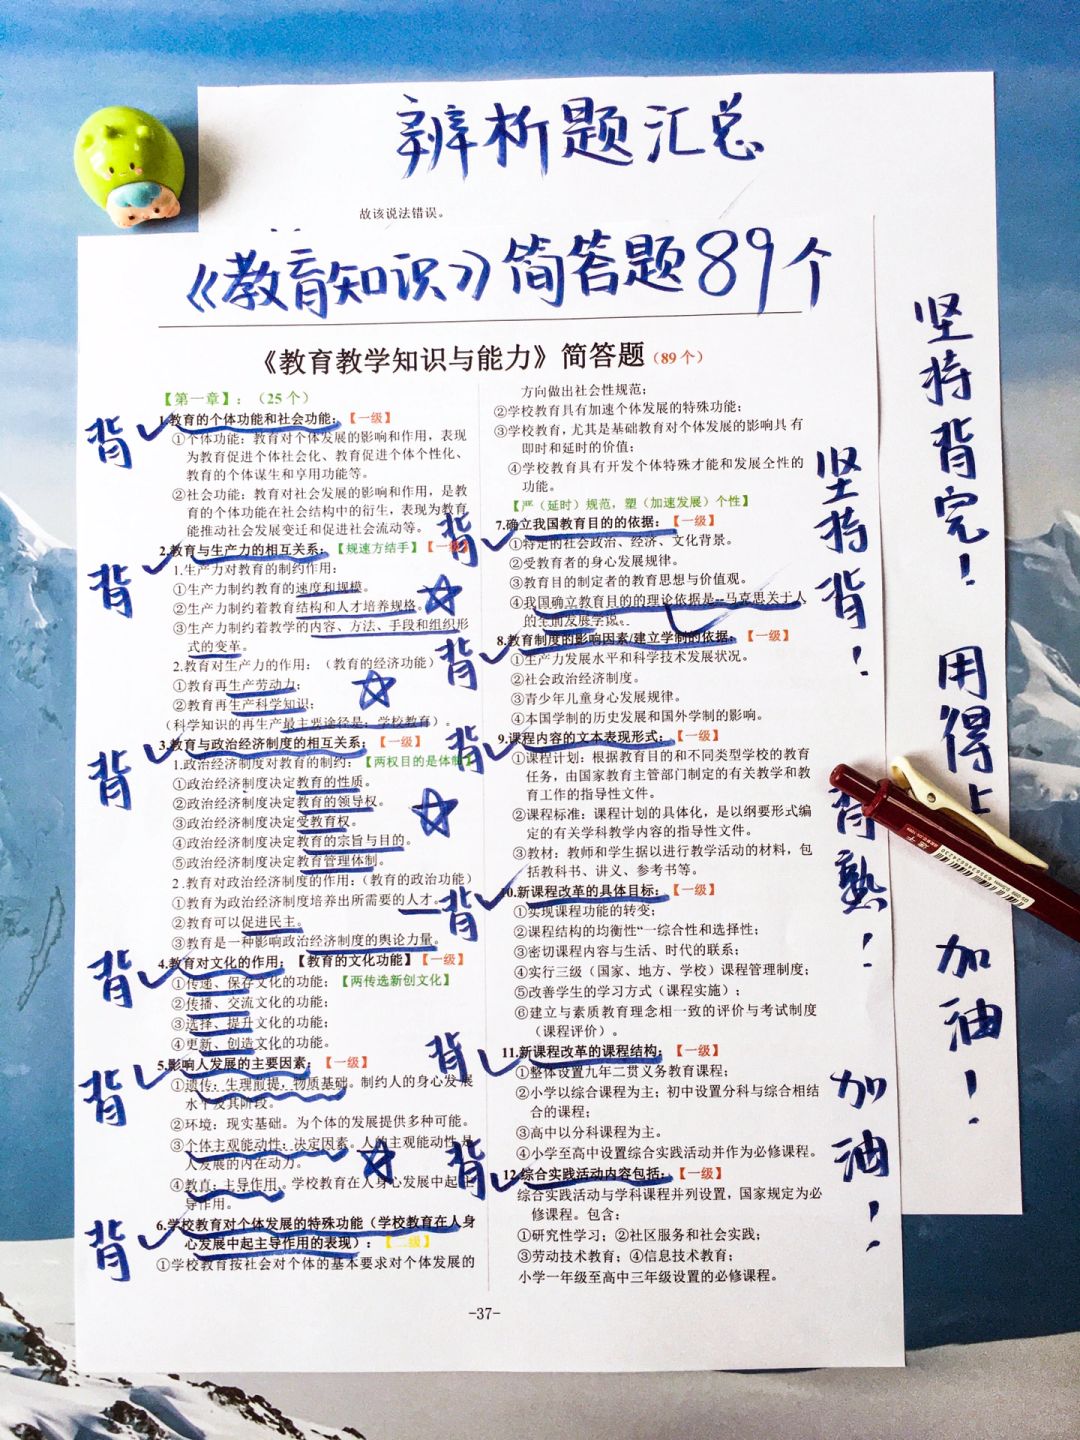 辨析题汇总
故该说法错误。
《教育知识》简答题89个
《教育教学知识与能力》简答题（89个）
【第一章】：（25个）
背
1.教育的个体功能和社会功能：【一级】
①个体功能：教育对个体发展的影响和作用，表现
为教育促进个体社会化、教育促进个体个性化、
教育的个体谋生和享用功能等。
②社会功能：教育对社会发展的影响和作用，是教
育的个体功能在社会结构中的衍生，表现为教育
能推动社会发展变迁和促进社会流动等。
背
2.教育与生产力的相互关系：【规速方结手】【一级】
1.生产力对教育的制约作用：
①生产力制约教育的速度和规模。
②生产力制约着教育结构和人才培养规格。
③生产力制约着教学的内容、方法、手段和组织形
式的变革。
2.教育对生产力的作用：（教育的经济功能）
①教育再生产劳动力；
②教育再生产科学知识；
（科学知识的再生产最主要途径是：学校教育）。
背
3.教育与政治经济制度的相互关系：【一级】
1.政治经济制度对教育的制约：【两权目的是体制】
①政治经济制度决定教育的性质。
②政治经济制度决定教育的领导权。
③政治经济制度决定受教育权。
④政治经济制度决定教育的宗旨与目的。
⑤政治经济制度决定教育管理体制。
2.教育对政治经济制度的作用：（教育的政治功能）
①教育为政治经济制度培养出所需要的人才。
②教育可以促进民主。
③教育是一种影响政治经济制度的舆论力量。
背
4.教育对文化的作用：【教育的文化功能】【一级】
①传递、保存文化的功能；【两传选新创文化】
②传播、交流文化的功能；
③选择、提升文化的功能；
④更新、创造文化的功能。
背
5.影响人发展的主要因素：【一级】
①遗传：生理前提，物质基础。制约人的身心发展
水平及其阶段。
②环境：现实基础。为个体的发展提供多种可能。
③个体主观能动性：决定因素。人的主观能动性是
人发展的内在动力。
④教育：主导作用。学校教育在人身心发展中起主
导作用。
背
6.学校教育对个体发展的特殊功能（学校教育在人身
心发展中起主导作用的表现）：【二级】
①学校教育按社会对个体的基本要求对个体发展的
方向做出社会性规范；
②学校教育具有加速个体发展的特殊功能；
③学校教育，尤其是基础教育对个体发展的影响具有
即时和延时的价值；
④学校教育具有开发个体特殊才能和发展个性的
功能。
【严（延时）规范，塑（加速发展）个性】
背
7.确立我国教育目的的依据：【一级】
①特定的社会政治、经济、文化背景。
②受教育者的身心发展规律。
③教育目的制定者的教育思想与价值观。
④我国确立教育目的的理论依据是--马克思关于人
的全面发展学说。
背
8.教育制度的影响因素/建立学制的依据：【一级】
①生产力发展水平和科学技术发展状况。
②社会政治经济制度。
③青少年儿童身心发展规律。
④本国学制的历史发展和国外学制的影响。
背
9.课程内容的文本表现形式：【一级】
①课程计划：根据教育目的和不同类型学校的教育
任务，由国家教育主管部门制定的有关教学和教
育工作的指导性文件。
②课程标准：课程计划的具体化，是以纲要形式编
定的有关学科教学内容的指导性文件。
③教材：教师和学生据以进行教学活动的材料，包
括教科书、讲义、参考书等。
背
10.新课程改革的具体目标：【一级】
①实现课程功能的转变；
②课程结构的均衡性一综合性和选择性；
③密切课程内容与生活、时代的联系；
④实行三级（国家、地方、学校）课程管理制度；
⑤改善学生的学习方式（课程实施）；
⑥建立与素质教育理念相一致的评价与考试制度
（课程评价）。
背
11.新课程改革的课程结构：【一级】
①整体设置九年二贯义务教育课程；
②小学以综合课程为主；初中设置分科与综合相结
合的课程；
③高中以分科课程为主。
④小学至高中设置综合实践活动并作为必修课程。
背
12.综合实践活动内容包括：【一级】
综合实践活动与学科课程并列设置，国家规定为必
修课程。包含：
①研究性学习；②社区服务和社会实践；
③劳动技术教育；④信息技术教育；
小学一年级至高中三年级设置的必修课程。
-37-
坚持背！背熟！加油！！
坚持背完！用得上 加油！！